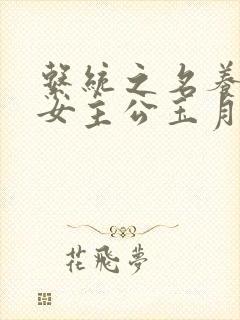 繫統之名養
女主公玉月
花飛夢